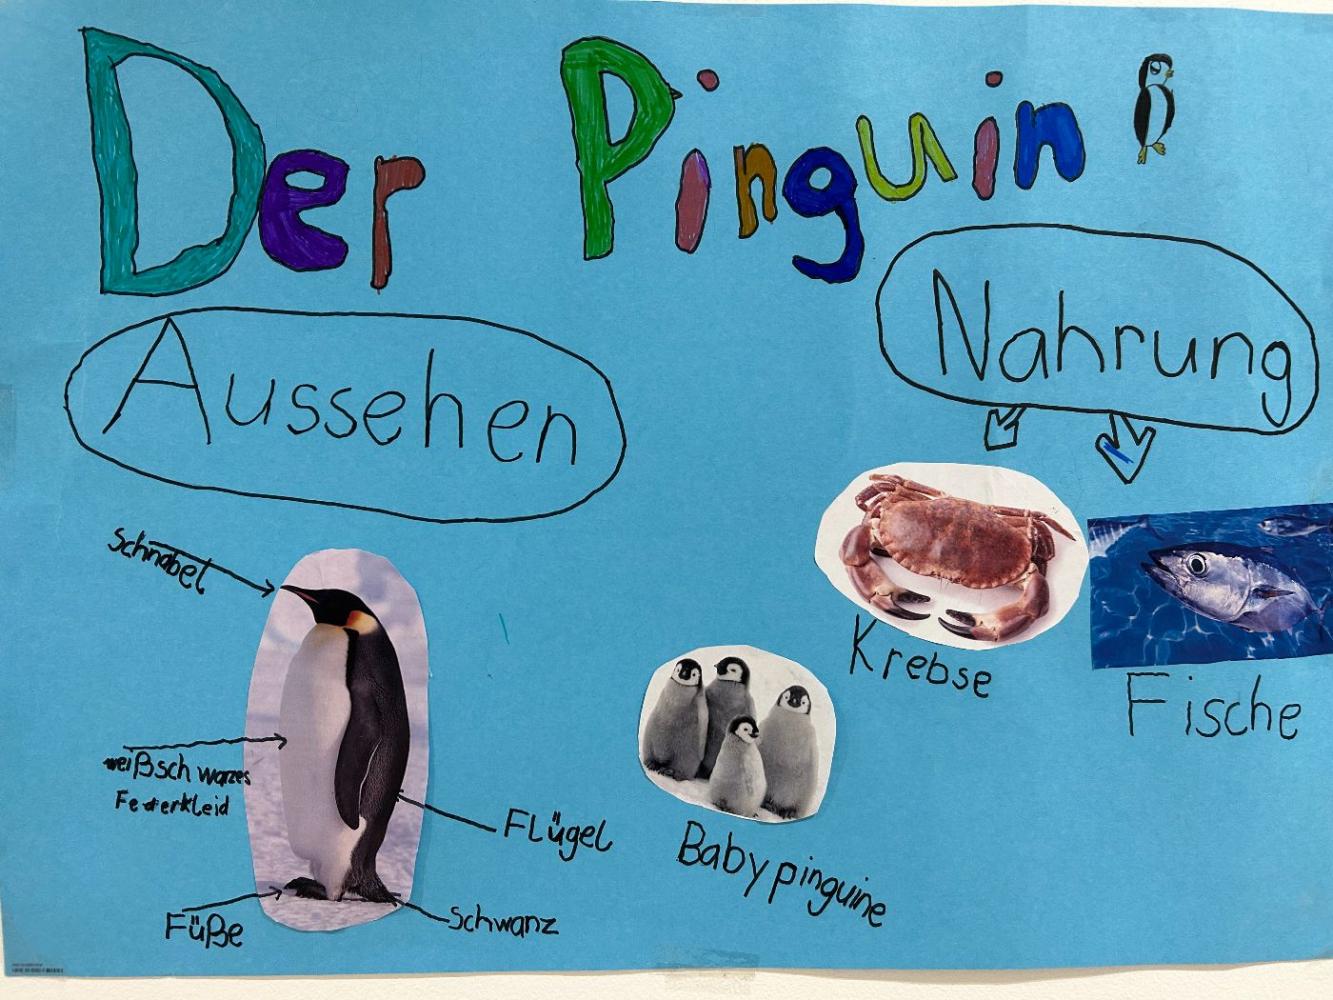 Der Pinguin
Aussehen
Nahrung
Schnabel
weißschwarzes
Federkleid
Flügel
Füße
Schwanz
Babypinguine
Krebse
Fische